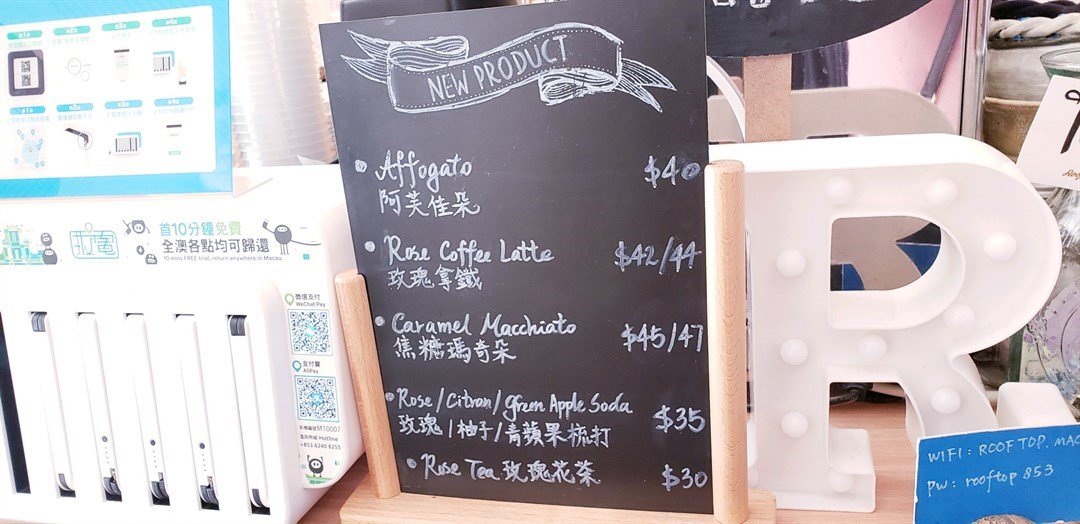 NEW PRODUCT
Affogato $40
阿芙佳朵
Rose Coffee Latte $42/44
玫瑰拿鐵
Caramel Macchiato $45/47
焦糖瑪奇朵
Rose/Citron/green Apple Soda $35
玫瑰/柚子/青蘋果梳打
Rose Tea 玫瑰花茶 $30
首10分鐘免費
全澳各點均可歸還
10 mins FREE trial, return anywhere in Macau
微信支付
WeChat Pay
支付寶
AliPay
本機編號 M10007
查詢熱線 Hotline
+853 6240 8255
R
WIFI: ROOFTOP.MAC
pw: rooftop 853